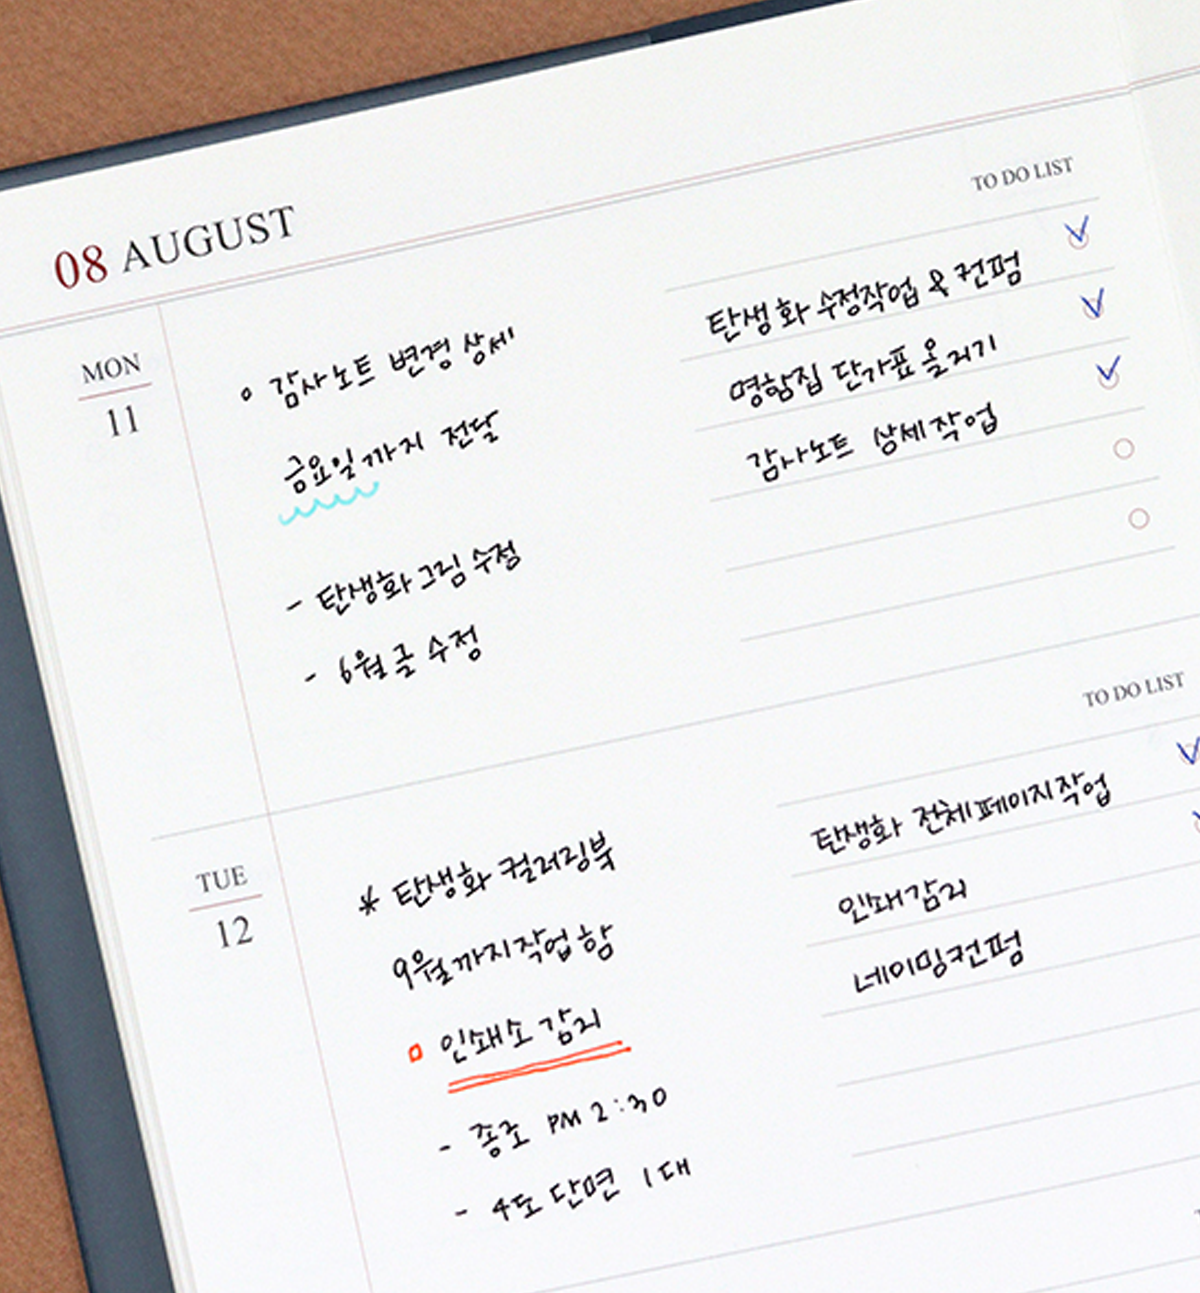 08 AUGUST
MON
11
감사노트 변경 상세
금요일까지 전달
- 탄생화 그림 수정
- 6월 글 수정
TO DO LIST
탄생화 수정작업 & 컨펌
명함집 단가표 올리기
감사노트 상세작업
TUE
12
* 탄생화 컬러링북
9월까지 작업 함
인쇄소 감리
- 종로 PM 2:30
- 4도 단면 1대
TO DO LIST
탄생화 전체페이지작업
인쇄감리
네이밍컨펌